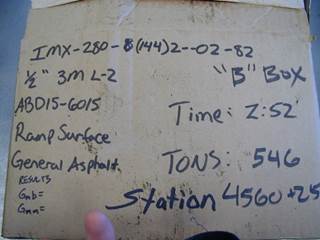 IMX-280-8(144)2--02-82
1/2" 3M L-2
"B" Box
ABD15-6015
Time: 2:52
Ramp Surface
General Asphalt
TONS: 546
RESULTS
Gmb=
Gmm=
Station 4560+25